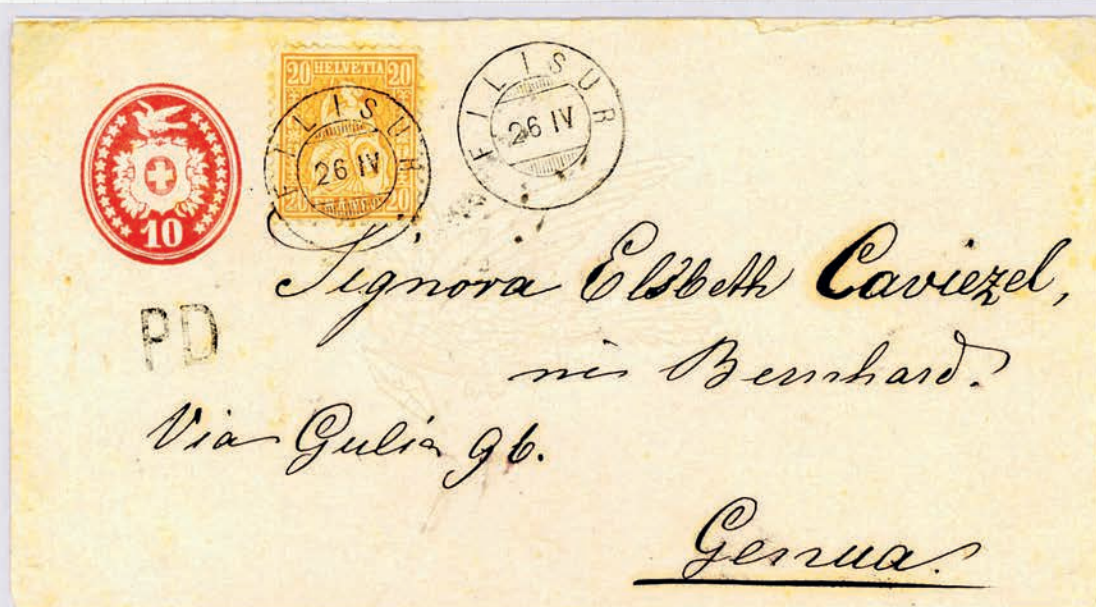 20 HELVETIA 20
20 FRANCO 20
10
FILISUR
26 IV
FILISUR
26 IV
PD
Signora Elsbeth Caviezel,
Bernhard.
Via Gulia 96.
Genua.